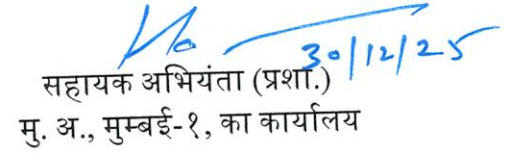 30/12/25
सहायक अभियंता (प्रशा.)
मु. अ., मुम्बई-१, का कार्यालय